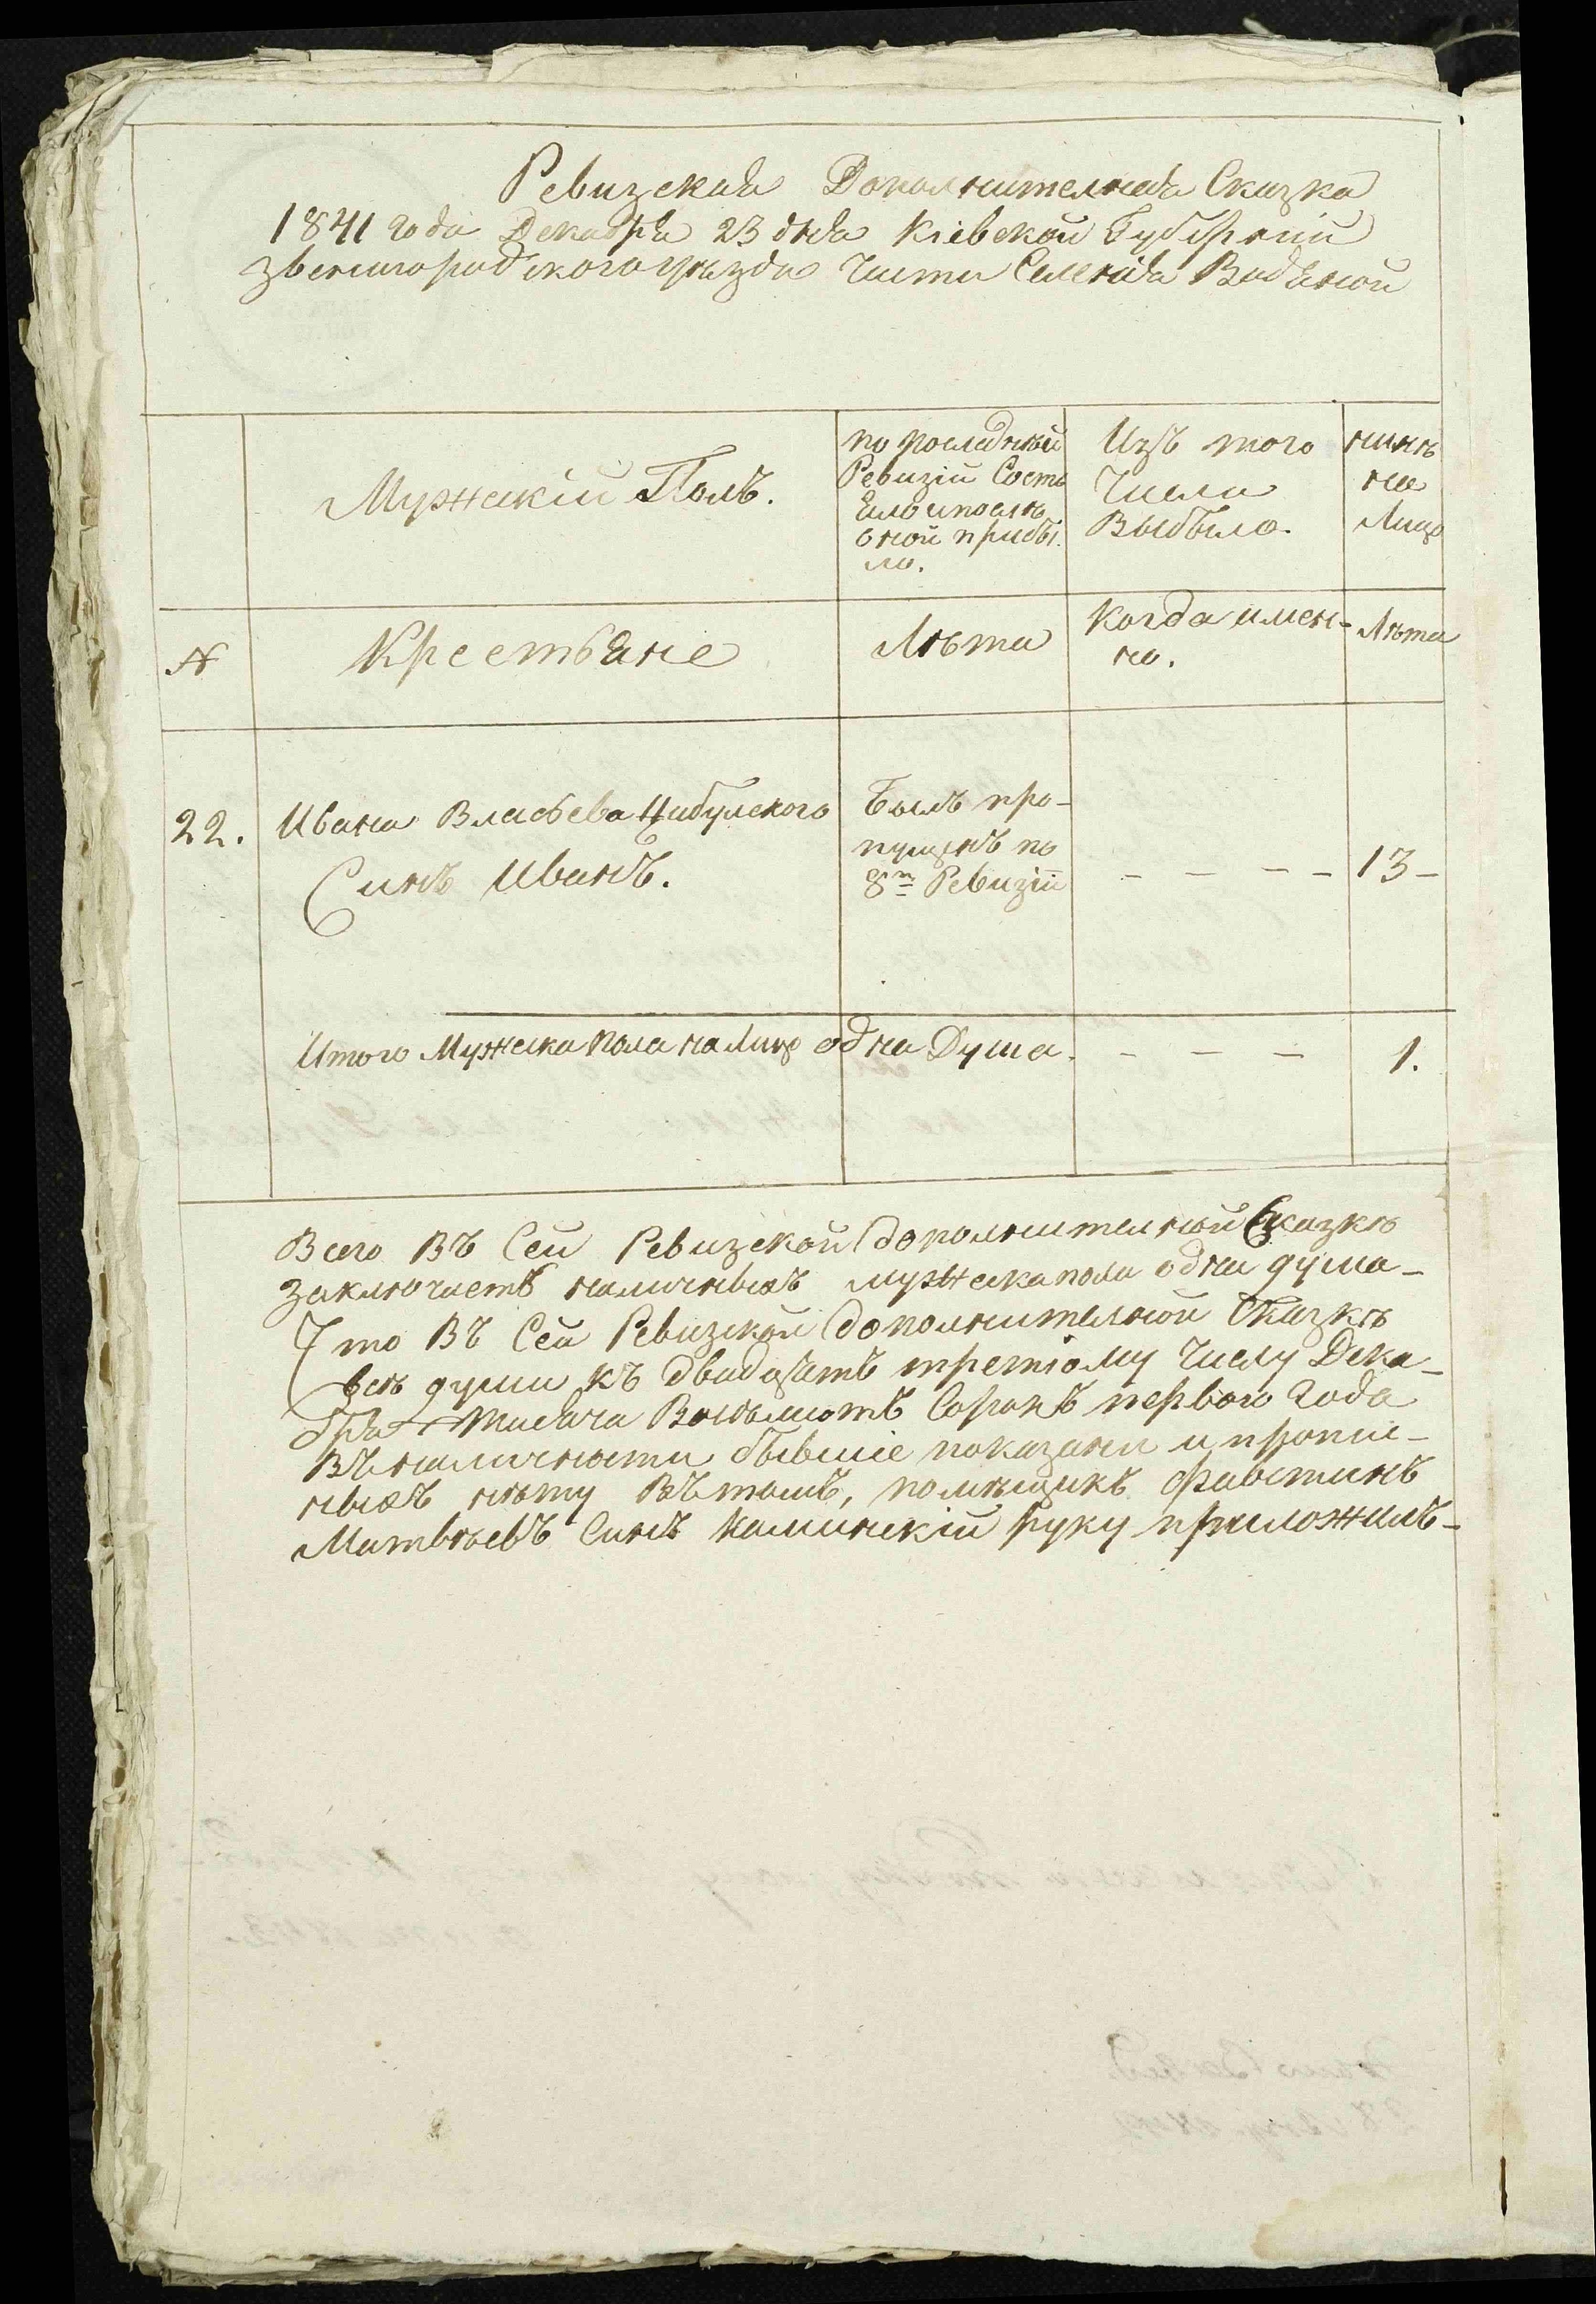 Ревизская Дополнителная Сказка
1841 года Декабря 23 дня Кіевской Губерніи
Звенигородского уѣзда Части Селенія Водяной
Мужескій Полъ.
по последней
Ревизіи Состо
яло и после
оной прибы
ло.
Изъ того
Числа
Выбыло.
нынѣ
на
Лицо
N
Крестьяне
Лѣта
когда имен-
но.
Лѣта
22.
Ивана Власьева Цибулского
Синъ Иванъ.
Былъ про-
пущенъ по
8й Ревизіи
- - - -
13-
Итого Мужеска пола на Лицо одна Душа. - - -
1.
Всего Въ Сей Ревизской дополнителной Сказкѣ
заключаетъ наличныхъ мужеска пола одна душа-
Что Въ Сей Ревизской дополнителной Сказкѣ
всѣ души къ двадцать третіому Числу Дека-
бря Тисяча Восьмсотъ Сорокъ первого Года
Въ наличности бывшіе показани и пропис-
ныхъ нѣту Въ томъ, помѣщикъ Фавстинъ
Матвѣевъ Синъ Каминскій руку приложилъ-